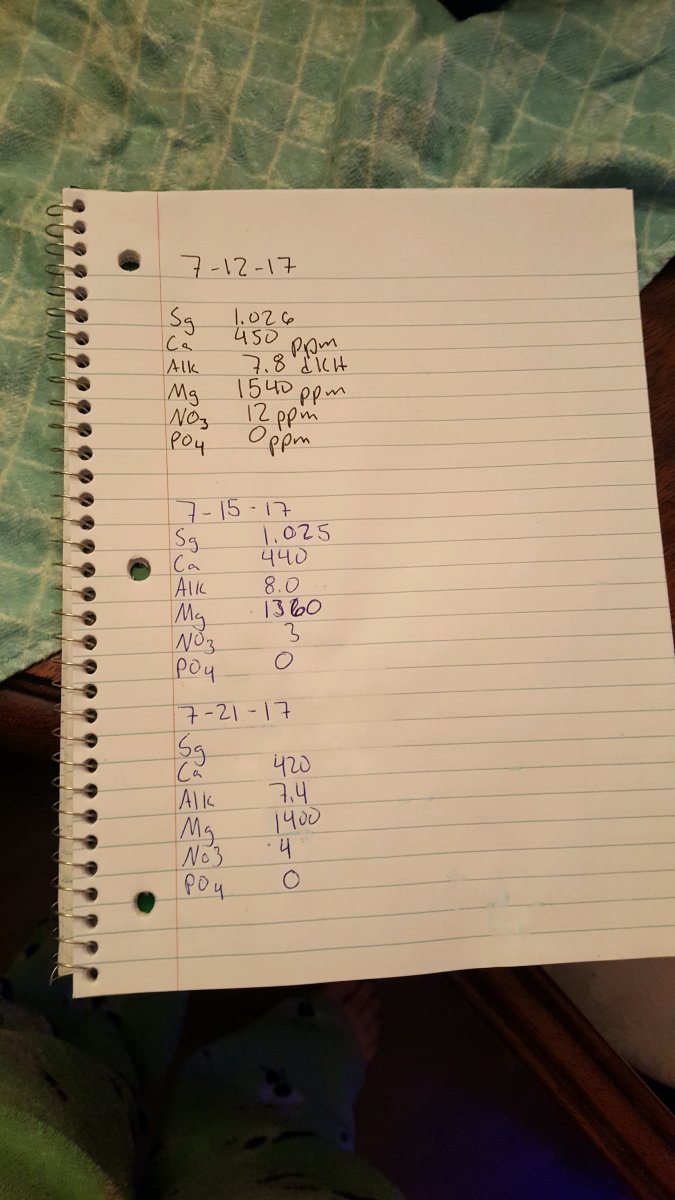 7-12-17
Sg 1.026
Ca 450 ppm
Alk 7.8 dKH
Mg 1540 ppm
NO3 12 ppm
PO4 0 ppm
7-15-17
Sg 1.025
Ca 440
Alk 8.0
Mg 1360
NO3 3
PO4 0
7-21-17
Sg
Ca 420
Alk 7.4
Mg 1400
No3 4
PO4 0